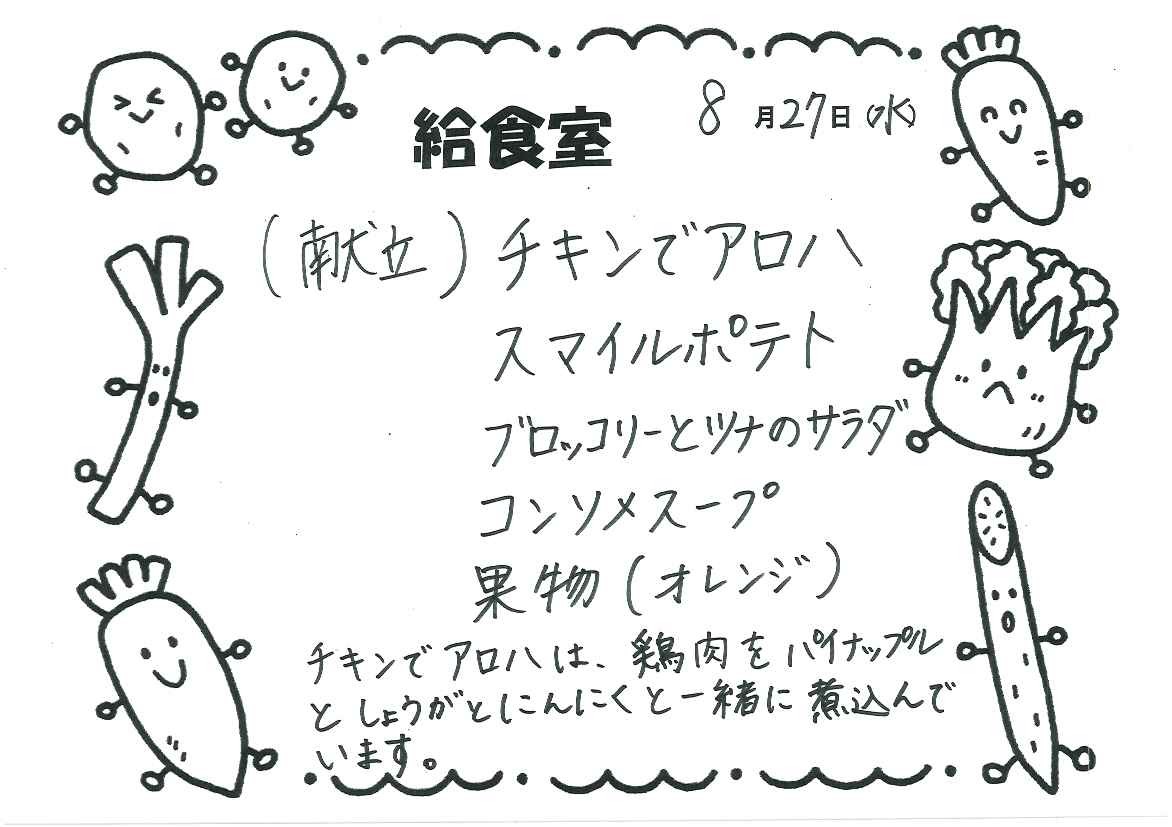 給食室 8月27日(水)
(献立)チキンでアロハ
スマイルポテト
ブロッコリーとツナのサラダ
コンソメスープ
果物(オレンジ)
チキンでアロハは、鶏肉をパイナップル
としょうがとにんにくと一緒に煮込んで
います。